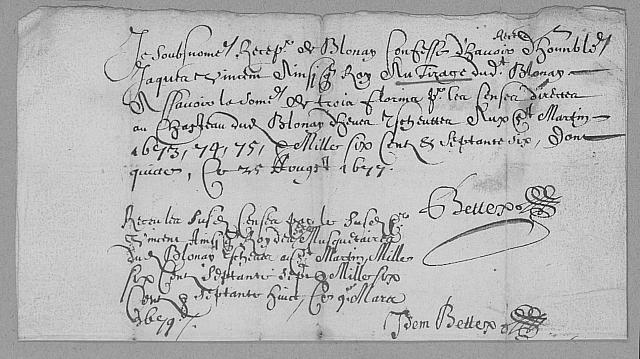 Je Soubsnomé, Recepr. de Blonay Confesse d'havoir Receu d'Honnble.
Jaques Vincent Ainsi Roy Au Tirage dud. Blonay
Assavoir la Some de trois florins pr. les Censes directes
au Chasteau dud Blonay deues Escheutes Aux St Martin
1673, 74, 75, & Mille six Cent & Septante six, dont
quitte, Ce 25 Aougst 1677.
Bettex
Receu les Susd. Censes par le Susd.
Vincent Roy des Musquetaires
dud Blonay Escheute au St Martin Mille
six Cent Septante Sept & Mille six
Cent & Septante huict, Ce Mars
1679.
Idem Bettex